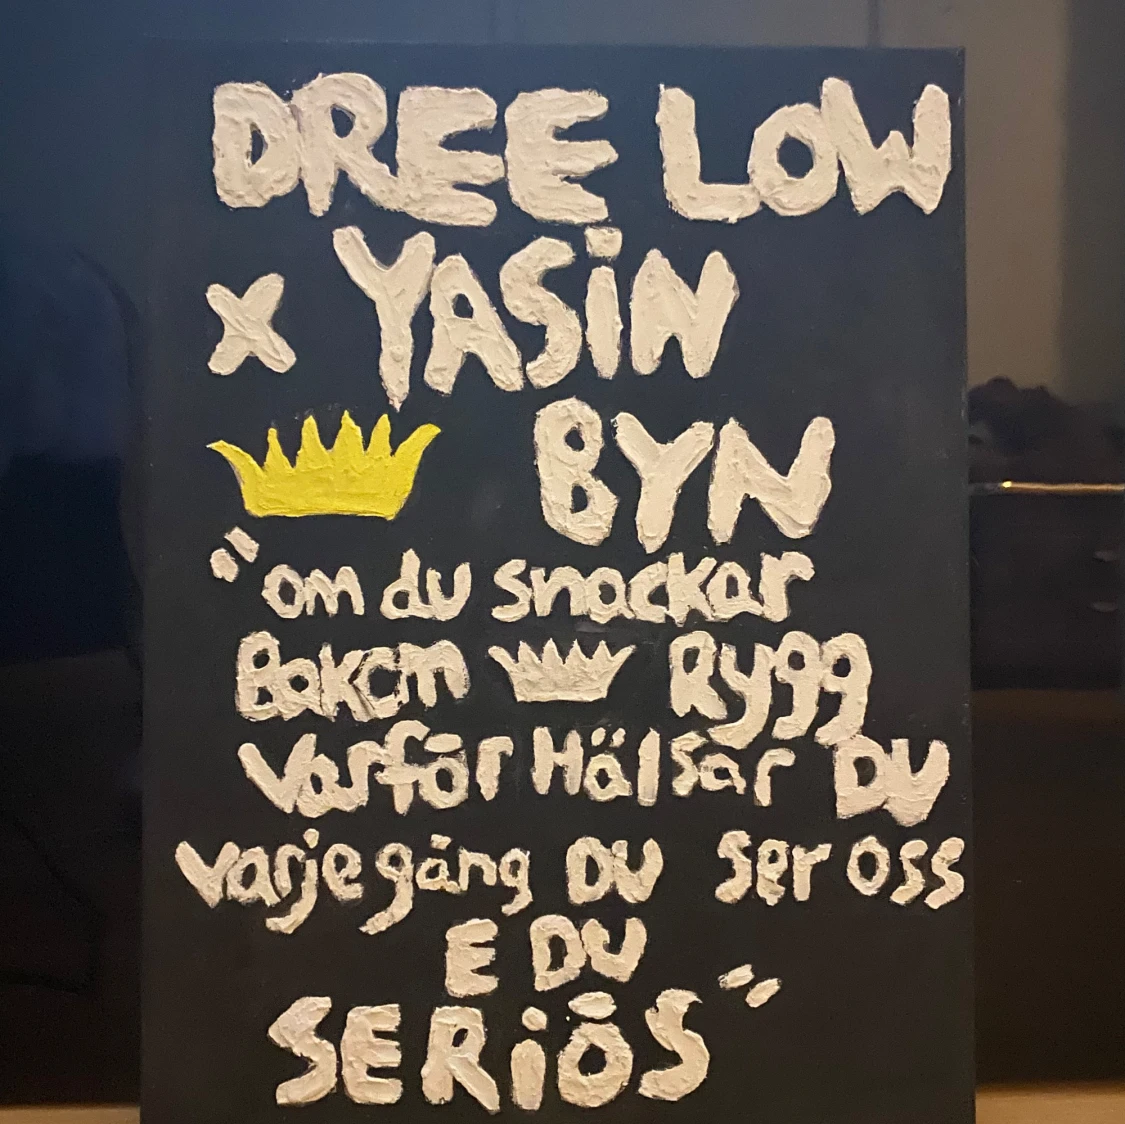 DREE LOW
x YASiN
BYN
"om du snackar
Bakom Rygg
Varför Hälsar DU
varje gång DU ser oss
E DU
SERiÖS"